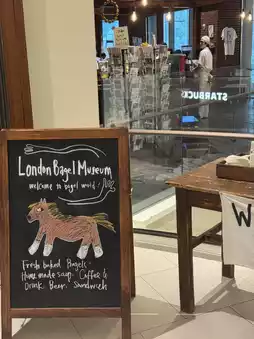 STARBUCKS
London Bagel Museum
welcome to bagel world!
Fresh baked Bagels.
Home made soup. Coffee &
Drink. Beer. Sandwich
W